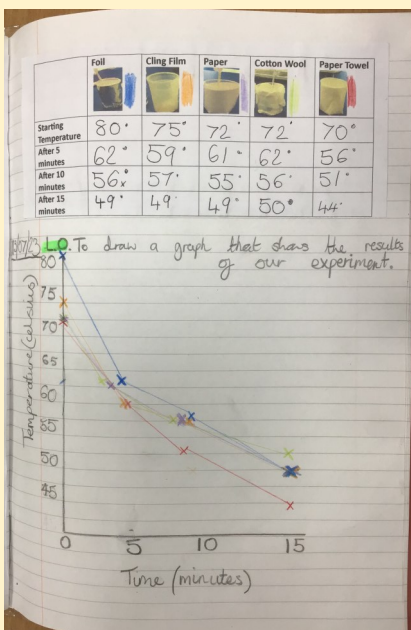 Foil Cling Film Paper Cotton Wool Paper Towel
Starting Temperature 80° 75° 72° 72° 70°
After 5 minutes 62° 59° 61° 62° 56°
After 10 minutes 56° 57° 55° 56° 51°
After 15 minutes 49° 49° 49° 50° 44°
L.O. To draw a graph that shows the results
of our experiment.
Temperature (celsius)
80
75
70
65
60
55
50
45
0 5 10 15
Time (minutes)